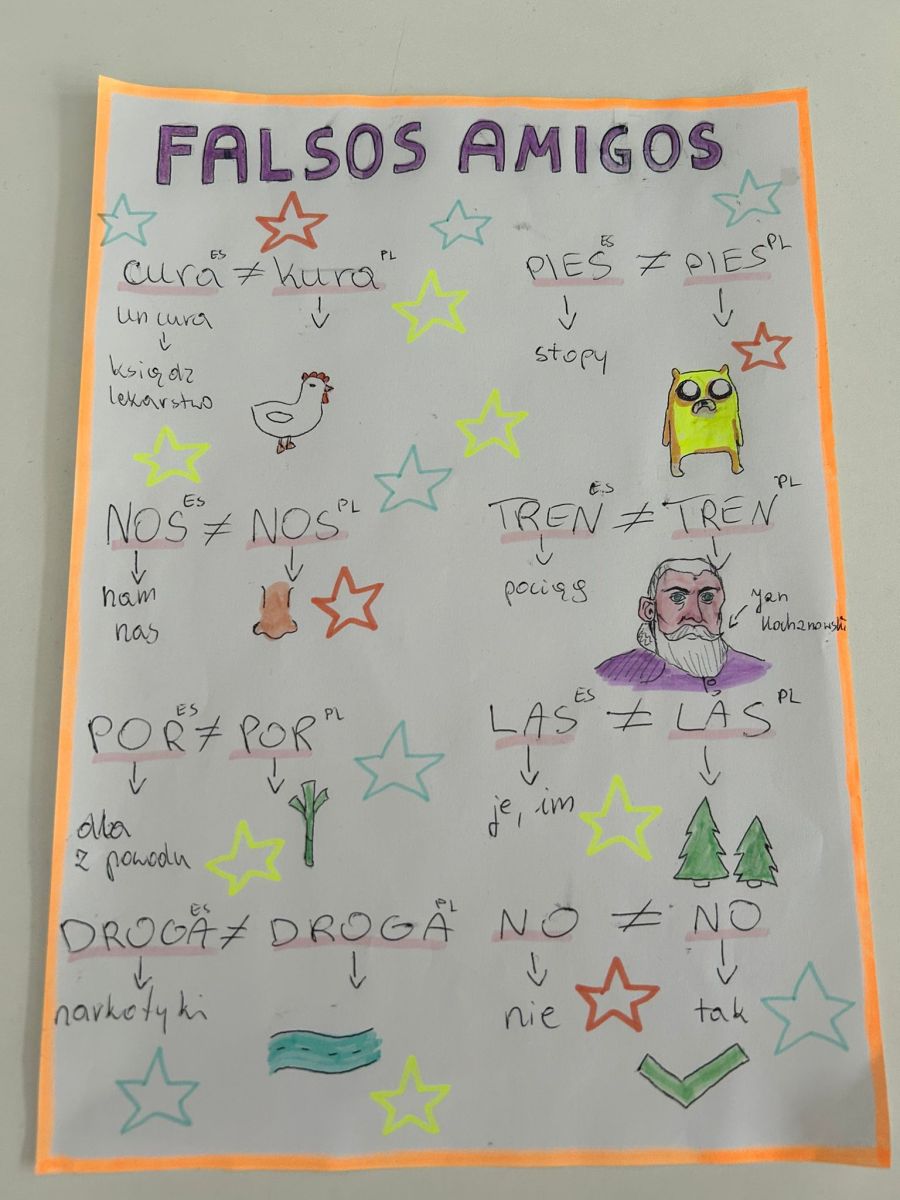 FALSOS AMIGOS
cura ES ≠ kura PL
un cura
ksiądz
lekarstwo
PIES ES ≠ PIES PL
stopy
NOS ES ≠ NOS PL
nam
nas
TREN ES ≠ TREN PL
pociąg
Jan
Kochanowski
POR ES ≠ POR PL
dla
z powodu
LAS ES ≠ LAS PL
je, im
DROGA ES ≠ DROGA PL
narkotyki
NO ≠ NO
nie
tak